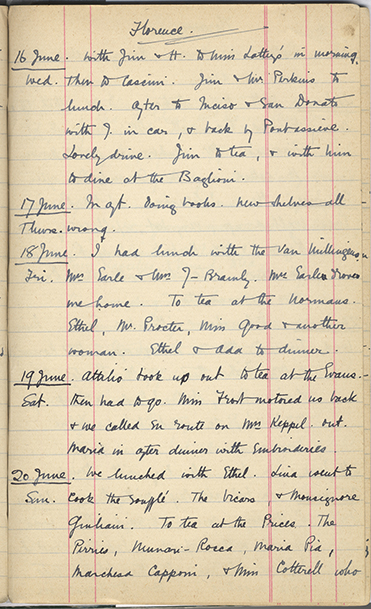 Florence.
16 June. With Jim & H. to Miss Lattey's in morning.
Wed. Then to Cascini. Jim & Mr Perkins to
lunch. After to Incisa & San Donato
with J. in car, & back by Pontassieve.
Lovely drive. Jim to tea, & with him
to dine at the Baglioni.
17 June. In apt. Doing books. New shelves all
Thurs. wrong.
18 June. I had lunch with the Van Millingens
Fri. Mrs Earle & Mrs J. Bramly. Mrs Earle drove
me home. To tea at the Normans.
Ethel, Mr. Procter, Miss Good & another
woman. Ethel & Add to dinner.
19 June. Attilio took us out to tea at the Evans.
Sat. then had to go. Miss Frost motored us back
& we called en route on Mrs Keppel. out.
Maria in after dinner with Embroideries
20 June. We lunched with Ethel. Lina went to
Sun. cook the soufflé. The Vicars & Monsignore
Giuliani. To tea at the Prices. The
Pirries, Munari-Rocca, Maria Pia,
Marchesa Capponi, & Miss Cotterell who